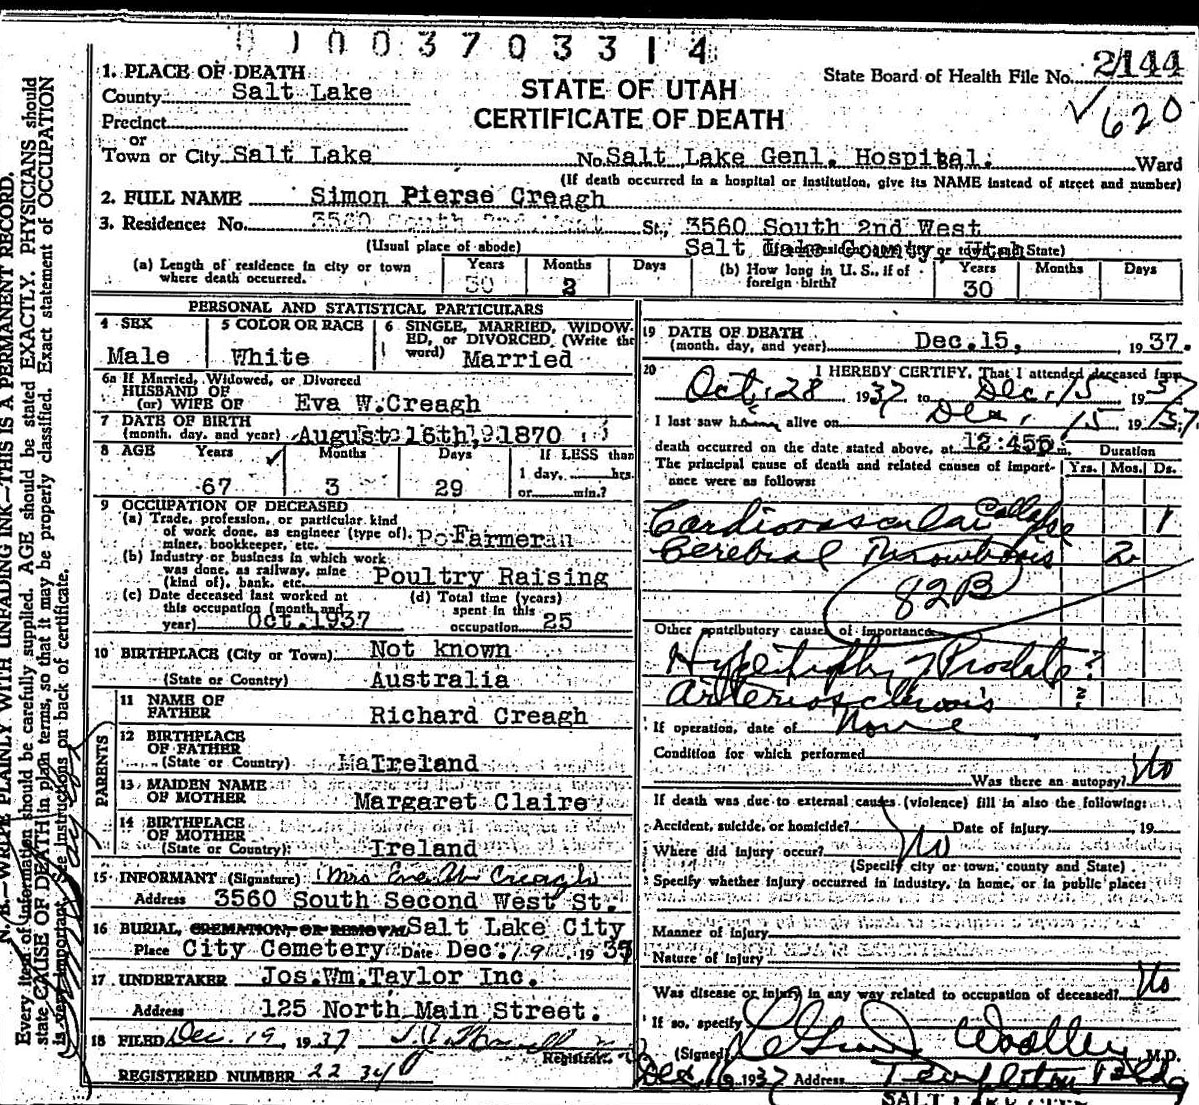 1003703314
1. PLACE OF DEATH
County Salt Lake
Precinct
or
Town or City Salt Lake
STATE OF UTAH
CERTIFICATE OF DEATH
State Board of Health File No. 2144
620
No. Salt Lake Genl. Hospital. Ward
(If death occurred in a hospital or institution, give its NAME instead of street and number)
2. FULL NAME Simon Pierse Creagh
3. Residence: No. 3560 South 2nd West St., 3560 South 2nd West
(Usual place of abode) Salt Lake County, Utah
(a) Length of residence in city or town where death occurred. Years 30 Months 2 Days
(b) How long in U. S., if of foreign birth? Years 30 Months Days
PERSONAL AND STATISTICAL PARTICULARS
4 SEX Male
5 COLOR OR RACE White
6 SINGLE, MARRIED, WIDOWED, or DIVORCED, (Write the word) Married
6a If Married, Widowed, or Divorced
HUSBAND OF
(or) WIFE OF Eva W.Creagh
7 DATE OF BIRTH
(month, day, and year) August 16th, 1870
8 AGE Years 67 Months 3 Days 29 If LESS than
1 day, hrs.
or min.?
9 OCCUPATION OF DECEASED
(a) Trade, profession, or particular kind
of work done, as engineer (type of),
miner, bookkeeper, etc. Farmer
(b) Industry or business in which work
was done, as railway, mine
(kind of), bank, etc. Poultry Raising
(c) Date deceased last worked at
this occupation (month and
year) Oct.1937
(d) Total time (years)
spent in this
occupation 25
10 BIRTHPLACE (City or Town) Not known
(State or Country) Australia
PARENTS
11 NAME OF
FATHER Richard Creagh
12 BIRTHPLACE
OF FATHER
(State or Country) Ireland
13 MAIDEN NAME
OF MOTHER Margaret Claire
14 BIRTHPLACE
OF MOTHER
(State or Country) Ireland
15 INFORMANT (Signature) Mrs Eva W Creagh
Address 3560 South Second West St.
16 BURIAL, CREMATION, OR REMOVAL Salt Lake City
Place City Cemetery Date Dec. 19 1937
17 UNDERTAKER Jos.Wm.Taylor Inc.
Address 125 North Main Street.
18 FILED Dec. 19, 1937
Registrar.
REGISTERED NUMBER 2234
19 DATE OF DEATH
(month, day, and year) Dec.15, 1937.
20 I HEREBY CERTIFY, That I attended deceased from
Oct. 28 1937 to Dec. 15 1937
I last saw him alive on Dec. 15 1937.
death occurred on the date stated above, at 12:45 m. Duration
The principal cause of death and related causes of importance were as follows: Yrs. Mos. Ds.
Cardiovascular Collapse 1
Cerebral Thrombosis 2
82B
Other contributory causes of importance
Hypertrophy of Prostate ?
Arteriosclerosis ?
If operation, date of None
Condition for which performed
Was there an autopsy? No
If death was due to external causes (violence) fill in also the following:
Accident, suicide, or homicide? Date of injury 19
Where did injury occur? No
(Specify city or town, county and State)
Specify whether injury occurred in industry, in home, or in public place:
Manner of injury
Nature of injury
Was disease or injury in any way related to occupation of deceased? No
If so, specify
(Signed) Woolley M.D.
Dec 16 1937 Address Templeton Bldg
SALT LAKE CITY
N. B.—WRITE PLAINLY WITH UNFADING INK—THIS IS A PERMANENT RECORD.
Every item of information should be carefully supplied. AGE should be stated EXACTLY. PHYSICIANS should
state CAUSE OF DEATH in plain terms, so that it may be properly classified. Exact statement of OCCUPATION
is very important. See instructions on back of certificate.